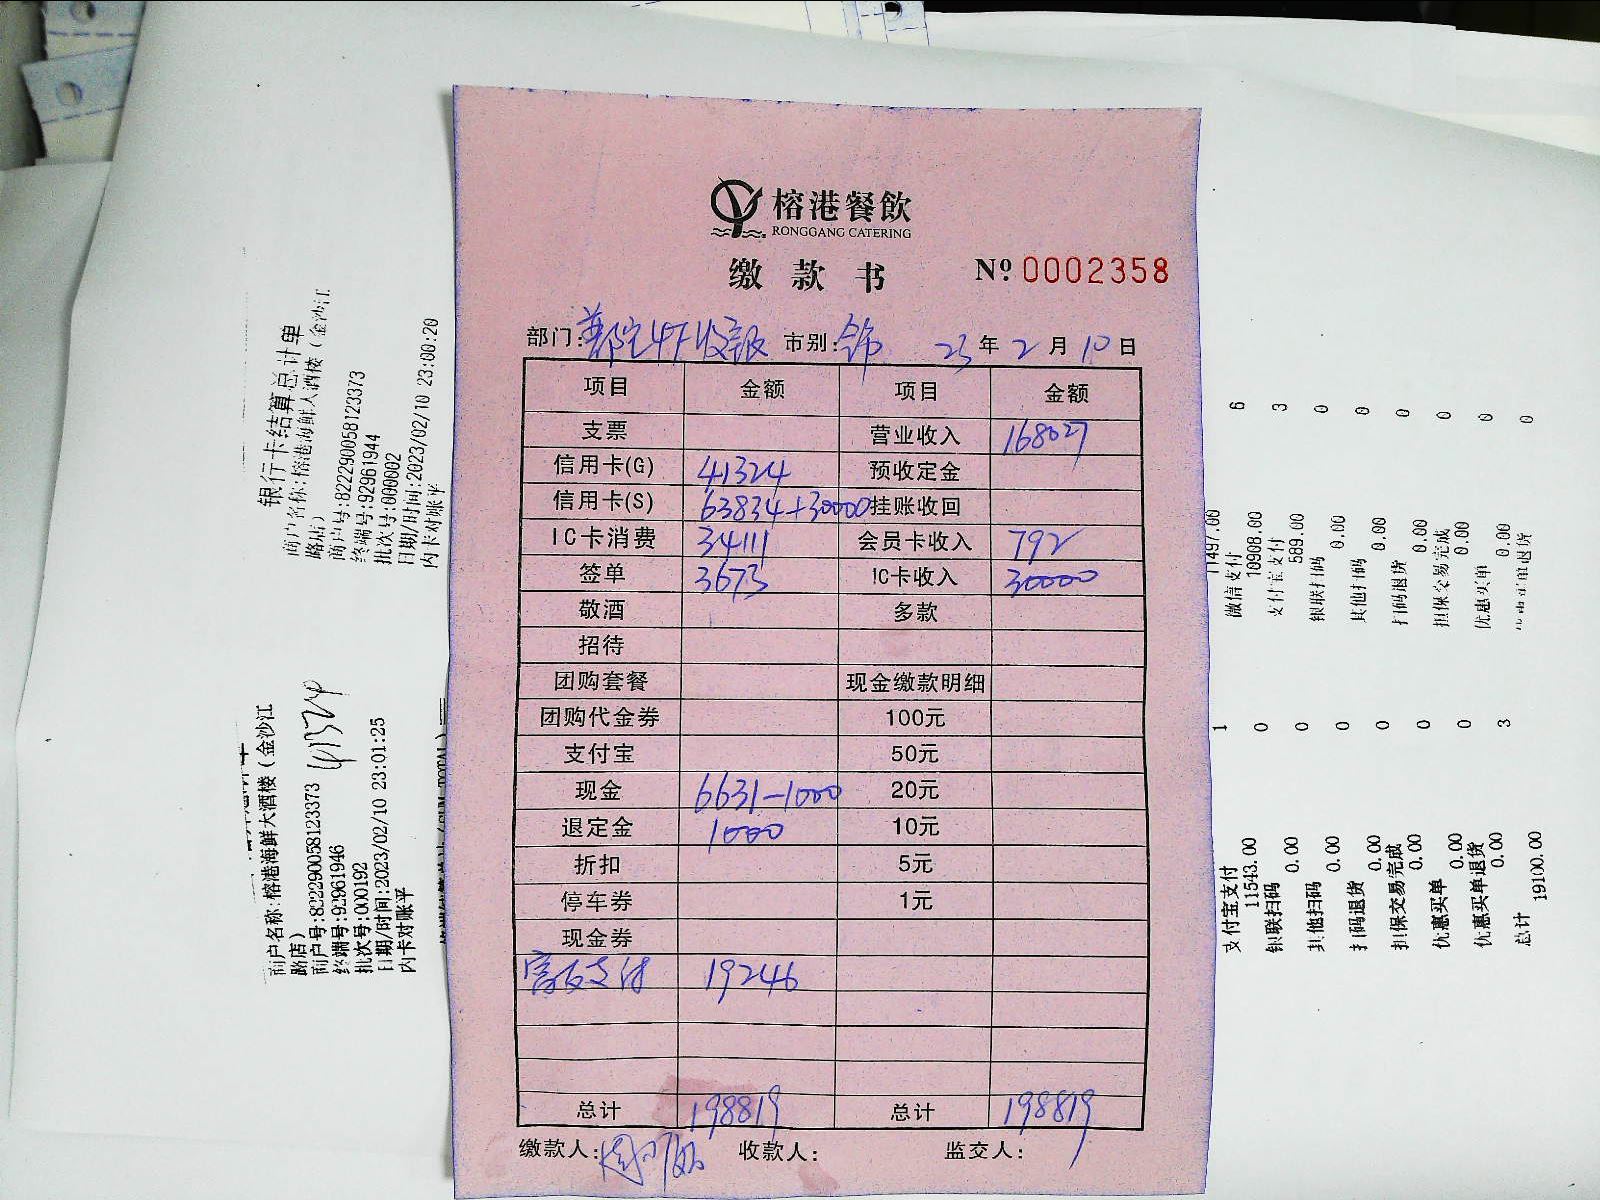 榕港餐飲
RONGGANG CATERING
缴款书 № 0002358
部门: 市别: 23 年 2 月 10 日
项目 金额 项目 金额
支票 营业收入 168027
信用卡(G) 41324 预收定金
信用卡(S) 63834+30000 挂账收回
IC卡消费 34111 会员卡收入 792
签单 3673 IC卡收入 30000
敬酒 多款
招待
团购套餐 现金缴款明细
团购代金券 100元
支付宝 50元
现金 6631-1000 20元
退定金 1000 10元
折扣 5元
停车券 1元
现金券
支付 19246
总计 198819 总计 198819
缴款人: 收款人: 监交人:
银行卡结算总计单
商户名称:榕港海鲜大酒楼(金沙江
路店)
商户号:82229005812​3373
终端号:92961944
批次号:000002
日期/时间:2023/02/10 23:00:20
内卡对账平
商户名称:榕港海鲜大酒楼(金沙江
路店)
商户号:822290058123373
终端号:92961946
批次号:000192
日期/时间:2023/02/10 23:01:25
内卡对账平
41324
11497.00
微信支付 6
10908.00
支付宝支付 3
589.00
银联扫码 0
0.00
其他扫码 0
0.00
扫码退货 0
0.00
担保交易完成 0
0.00
优惠买单 0
0.00
优惠买单退货 0
支付宝支付 1
11543.00
银联扫码 0
0.00
其他扫码 0
0.00
扫码退货 0
0.00
担保交易完成 0
0.00
优惠买单 0
0.00
优惠买单退货 0
0.00
总计 3
19100.00